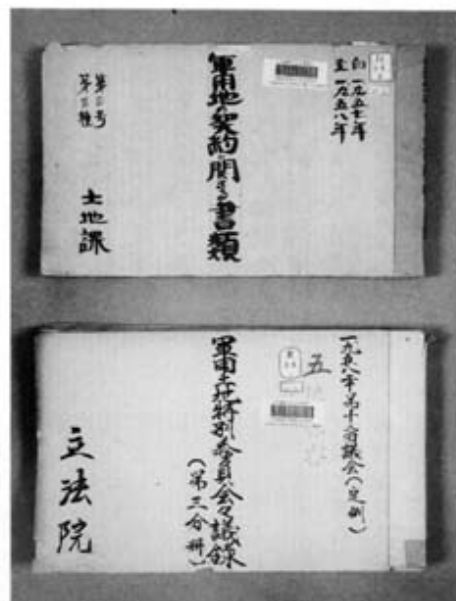 自 一九五七年
至 一九五八年
軍用地の契約に関する書類
土地課
一九五八年第十二回議会(定例)
五
軍用土地特別委員会々議録
(第三分冊)
立法院